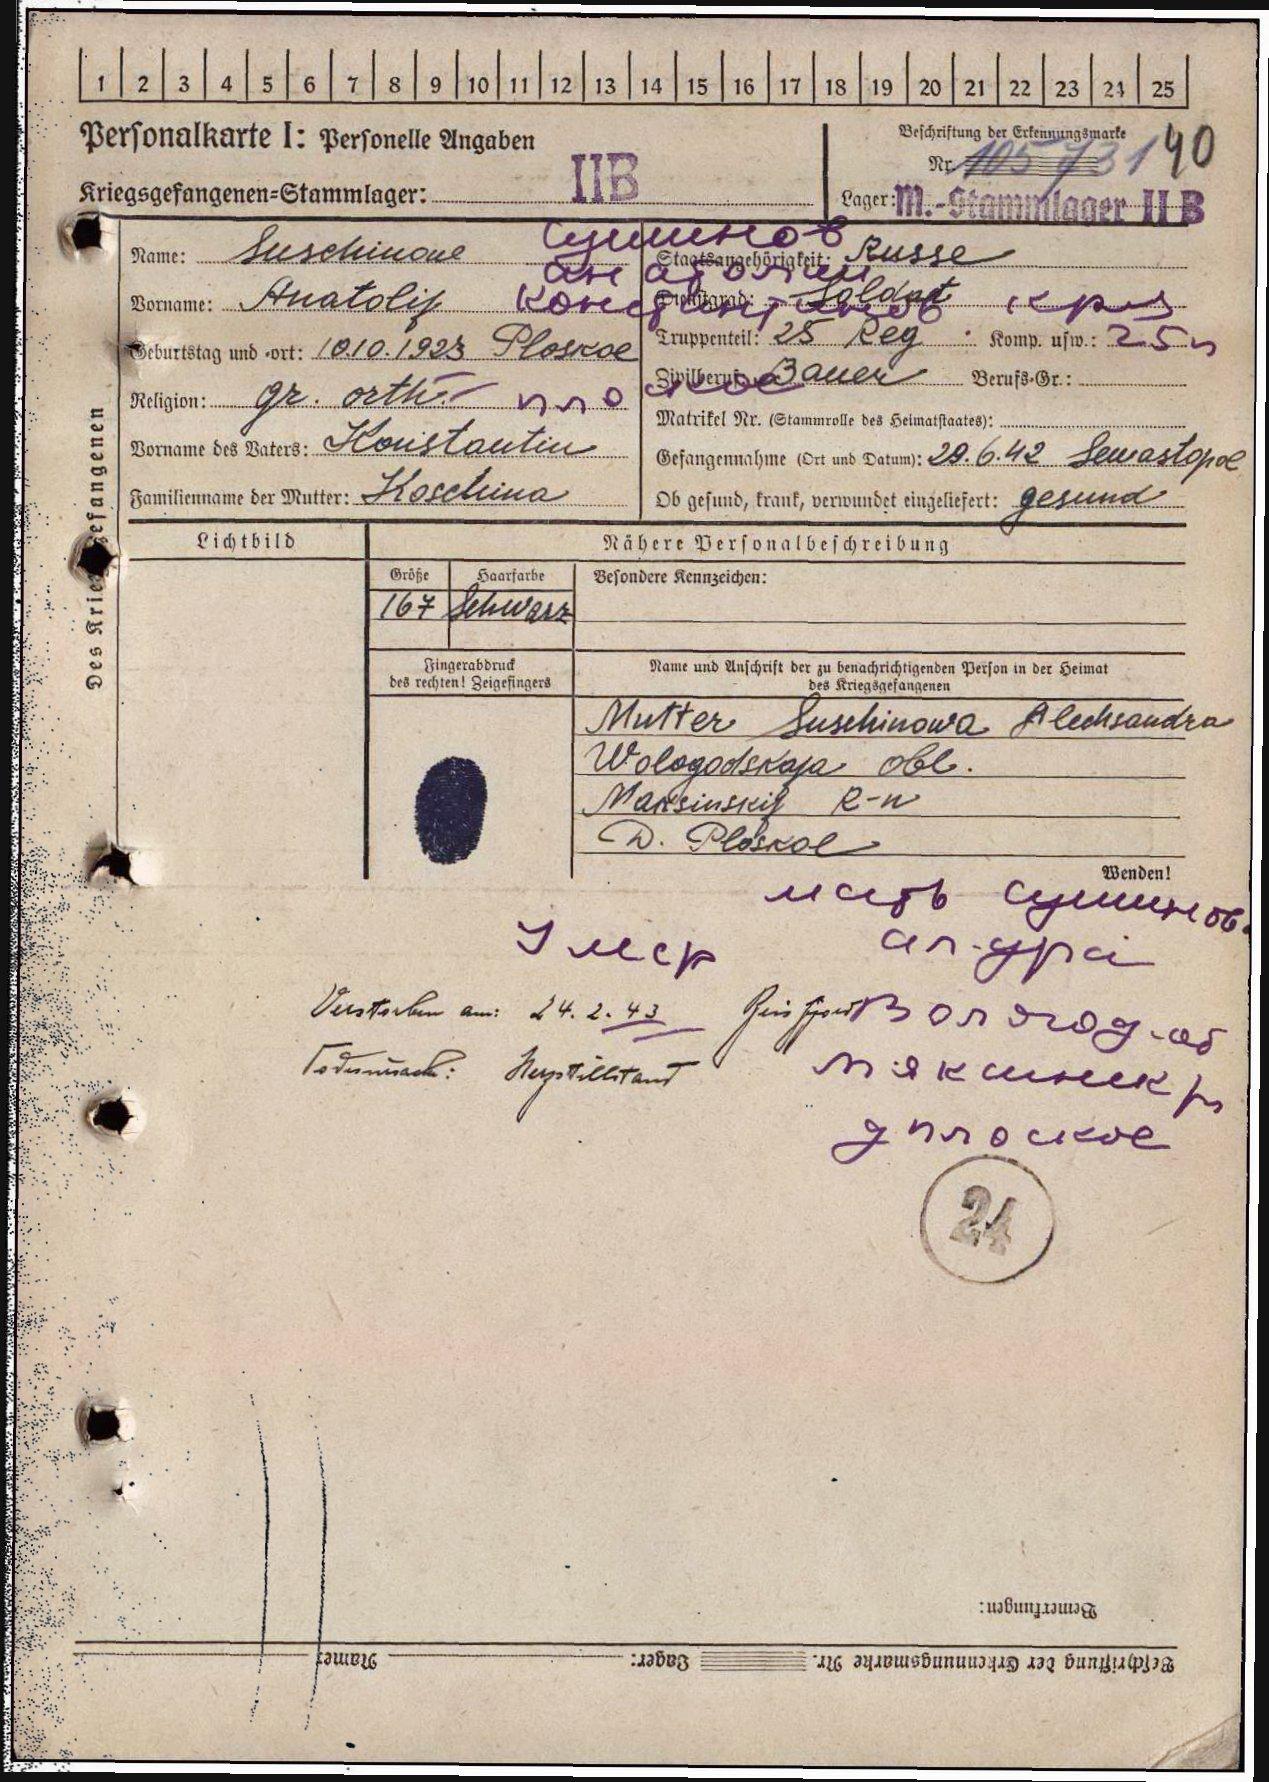 1 2 3 4 5 6 7 8 9 10 11 12 13 14 15 16 17 18 19 20 21 22 23 24 25
Personalkarte I: Personelle Angaben
Beschriftung der Erkennungsmarke
Nr. 105731 40
Kriegsgefangenen=Stammlager: II B
Lager: M.-Stammlager II B
Des Kriegsgefangenen
Name: Suschinow
Сушинов
Staatsangehörigkeit: Russe
Анатолий
Vorname: Anatolij
Dienstgrad: Soldat
Константинов кра
Geburtstag und =ort: 10.10.1923 Ploskoe
Truppenteil: 25 Reg. Komp. usw.: 25 п
Zivilberuf: Bauer Berufs=Gr.:
Religion: gr. orth.
плоское
Matrikel Nr. (Stammrolle des Heimatstaates):
Vorname des Vaters: Konstantin
Gefangennahme (Ort und Datum): 29.6.42 Sewastopol
Familienname der Mutter: Koschina
Ob gesund, krank, verwundet eingeliefert: gesund
Lichtbild
Nähere Personalbeschreibung
Größe Haarfarbe Besondere Kennzeichen:
167 Schwarz
Fingerabdruck
des rechten! Zeigefingers
Name und Anschrift der zu benachrichtigenden Person in der Heimat
des Kriegsgefangenen
Mutter Suschinowa Alechsandra
Wologodskaja obl.
Maksinskij R-n
D. Ploskoe
Wenden!
мать Сушинов.
Умер
Verstorben am: 24.2.43
Волягод-об
Todesursache: Herzstillstand
мяксинск р
д плоское
24
Bemerkungen:
Beschriftung der Erkennungsmarke Nr. Lager: Name: